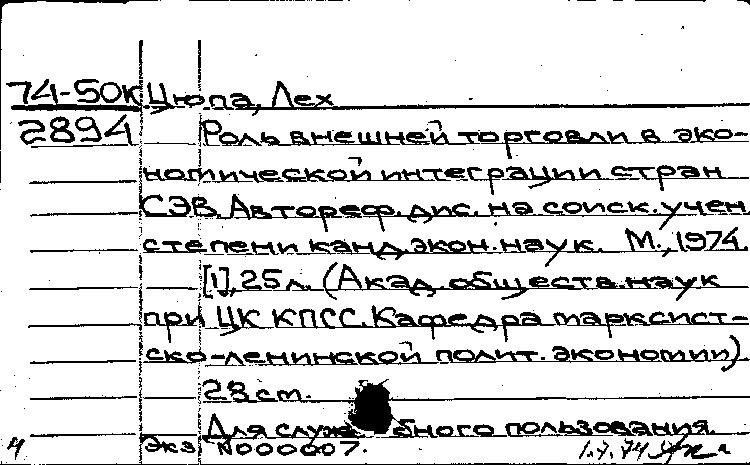 74-50к Цюпа, Лех
2894 Роль внешней торговли в эко-
номической интеграции стран
СЭВ. Автореф. дис. на соиск. учен.
степени канд. экон. наук. М., 1974.
[1], 25 л. (Акад. обществ. наук
при ЦК КПСС. Кафедра марксист-
ско-ленинской полит. экономии)
28 см.
Для служебного пользования.
Экз. N000007.
4